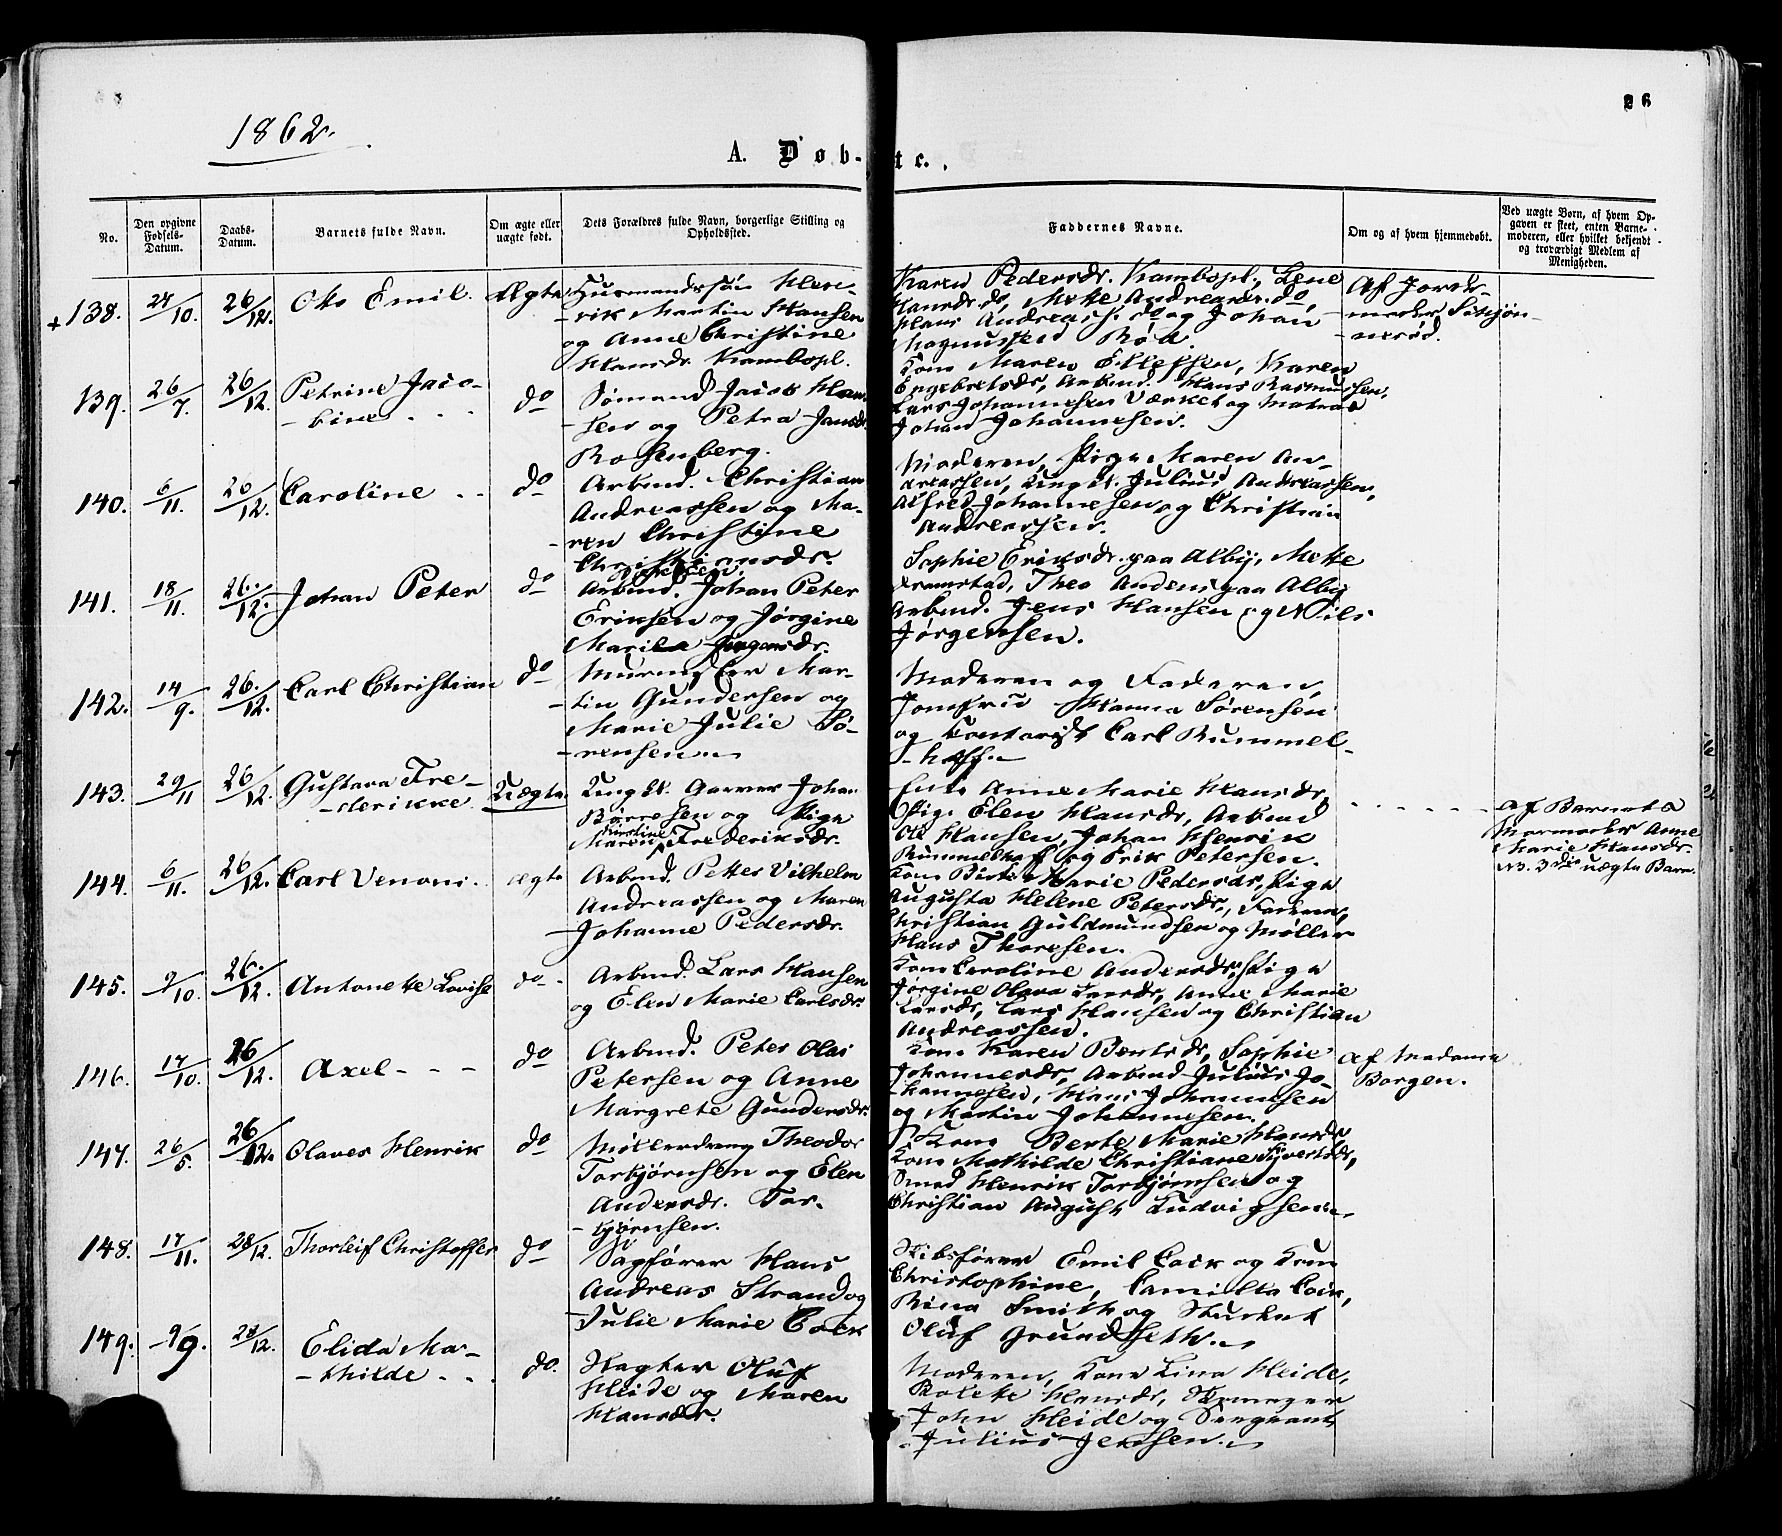 26
1862.
A. Døb-te.
No.
Den opgivne Fødsels-Datum.
Daabs-Datum.
Barnets fulde Navn.
Om ægte eller uægte født.
Dets Forældres fulde Navn, borgerlige Stilling og Opholdssted.
Faddernes Navne.
Om og af hvem hjemmedøbt.
Ved uægte Børn, af hvem Op-
gaven er skeet, enten Barne-
moderen, eller hvilket bekjendt
og troværdigt Medlem af
Menigheden.
+138. 24/10. 26/12. Oto Emil. Ægte
Husmandssøn Hen-
rik Martin Hansen
og Anne Christine
Hansdr. Kambopl.
Karen Pedersdr. Kambopl., Lene
Hansdr. do, Mette Andreasdr. do,
Hans Andreass. do og Johan
Magnussen Rød.
Af Jorde-
moder
139. 26/7. 26/12. Petrine Jaco-
-bine do
Sømand Jacob Han-
sen og Petra Jansdr.
Rosenberg.
Kone Maren Ellefsen, Karen
Engebretsdr., Arbmd. Hans Rasmussen,
Lars Johannesen Værket og Matros
Johan Johannesen.
140. 6/11. 26/12. Caroline do
Arbmd. Christian
Andreassen og Ma-
ren Christine
Christiansdr.
Moderen, Pige Maren An-
dreassen, Ungk. Julius Andreassen,
Alfred Johannesen og Christian
Andreassen.
141. 18/11. 26/12. Johan Peter do
Arbmd. Johan Peter
Eriksen og Jørgine
Marie Jørgensdr.
Sophie Eriksdr. paa Alby, Mette
Theo Anders. paa Alby
Arbmd. Jens Hansen og Nils
Jørgensen.
142. 14/9. 26/12. Carl Christian do
Murmester Mar-
tin Gundersen og
Marie Julie Sø-
-rensen
Moderen og Faderen,
Jomfru Hanna Sørensen
og Contorist Carl Rummel-
-hoff.
143. 29/11 26/12. Gustava Fre-
-derikke Uægte
Ungk. Garver Johan
Børresen og Pige
Maren Kirstine Frederiksdr.
Enke Anne Marie Hansdr.
Pige Elen Hansdr., Arbmd
Ole Hansen, Johan Henrik
Rummelhoff og Erik Petersen.
af Barnets
Mormoder Anne
Marie Hansdr.
NB. 3die uægte Barn.
144. 6/11. 26/12. Carl Venoni. ægte
Arbmd. Petter Vilhelm
Andreassen og Maren
Johanne Pedersdr.
Kone Birte Marie Pedersdr., Pige
Augusta Helene Petersdr., Faderen,
Christian Guldmundsen og Møller
Hans Thoresen.
145. 9/10. 26/12. Antonette Lovise do
Arbmd. Lars Hansen
og Elen Marie Carlsdr.
Kone Caroline Andersdr., Pige
Jørgine Olava Larsdr., Anne Marie
Larsdr., Lars Hansen og Christian
Andreassen.
146. 17/10. 26/12. Axel do
Arbmd. Peter Olai
Petersen og Anne
Margrete Gundersdr.
Kone Karen Berntsdr., Sophie
Johannesdr., Arbmd Julius Jo-
-hannesen, Hans Johannesen
og Martin Johannesen.
Af Madame
Borgen.
147. 26/5. 26/12. Olaves Henrik do
Møllerdreng Theodor
Torbjørnsen og Elen
Andersdr. Tor-
bjørnsen.
Kone Berte Marie Hansdr
Kone Mathilde Christiane Syvertsdr,
Smed Henrik Torbjørnsen og
Christian August Ludvigsen.
148. 17/11. 28/12. Thorleif Christoffer do
Sagfører Hans
Andreas Strand og
Julie Marie Cock
Skibsfører Emil Cock og Kone
Christophine, Camilla Cock,
Rina Smith og Student
Oluf Grundseth.
149. 9/9. 28/12. Elida Ma-
-thilde do.
Slagter Oluf
Heide og Maren
Hansdr.
Moderen, Kone Lina Heide,
Bolette Hansdr., Skomager
John Heide og Sergeant
Julius Jensen.